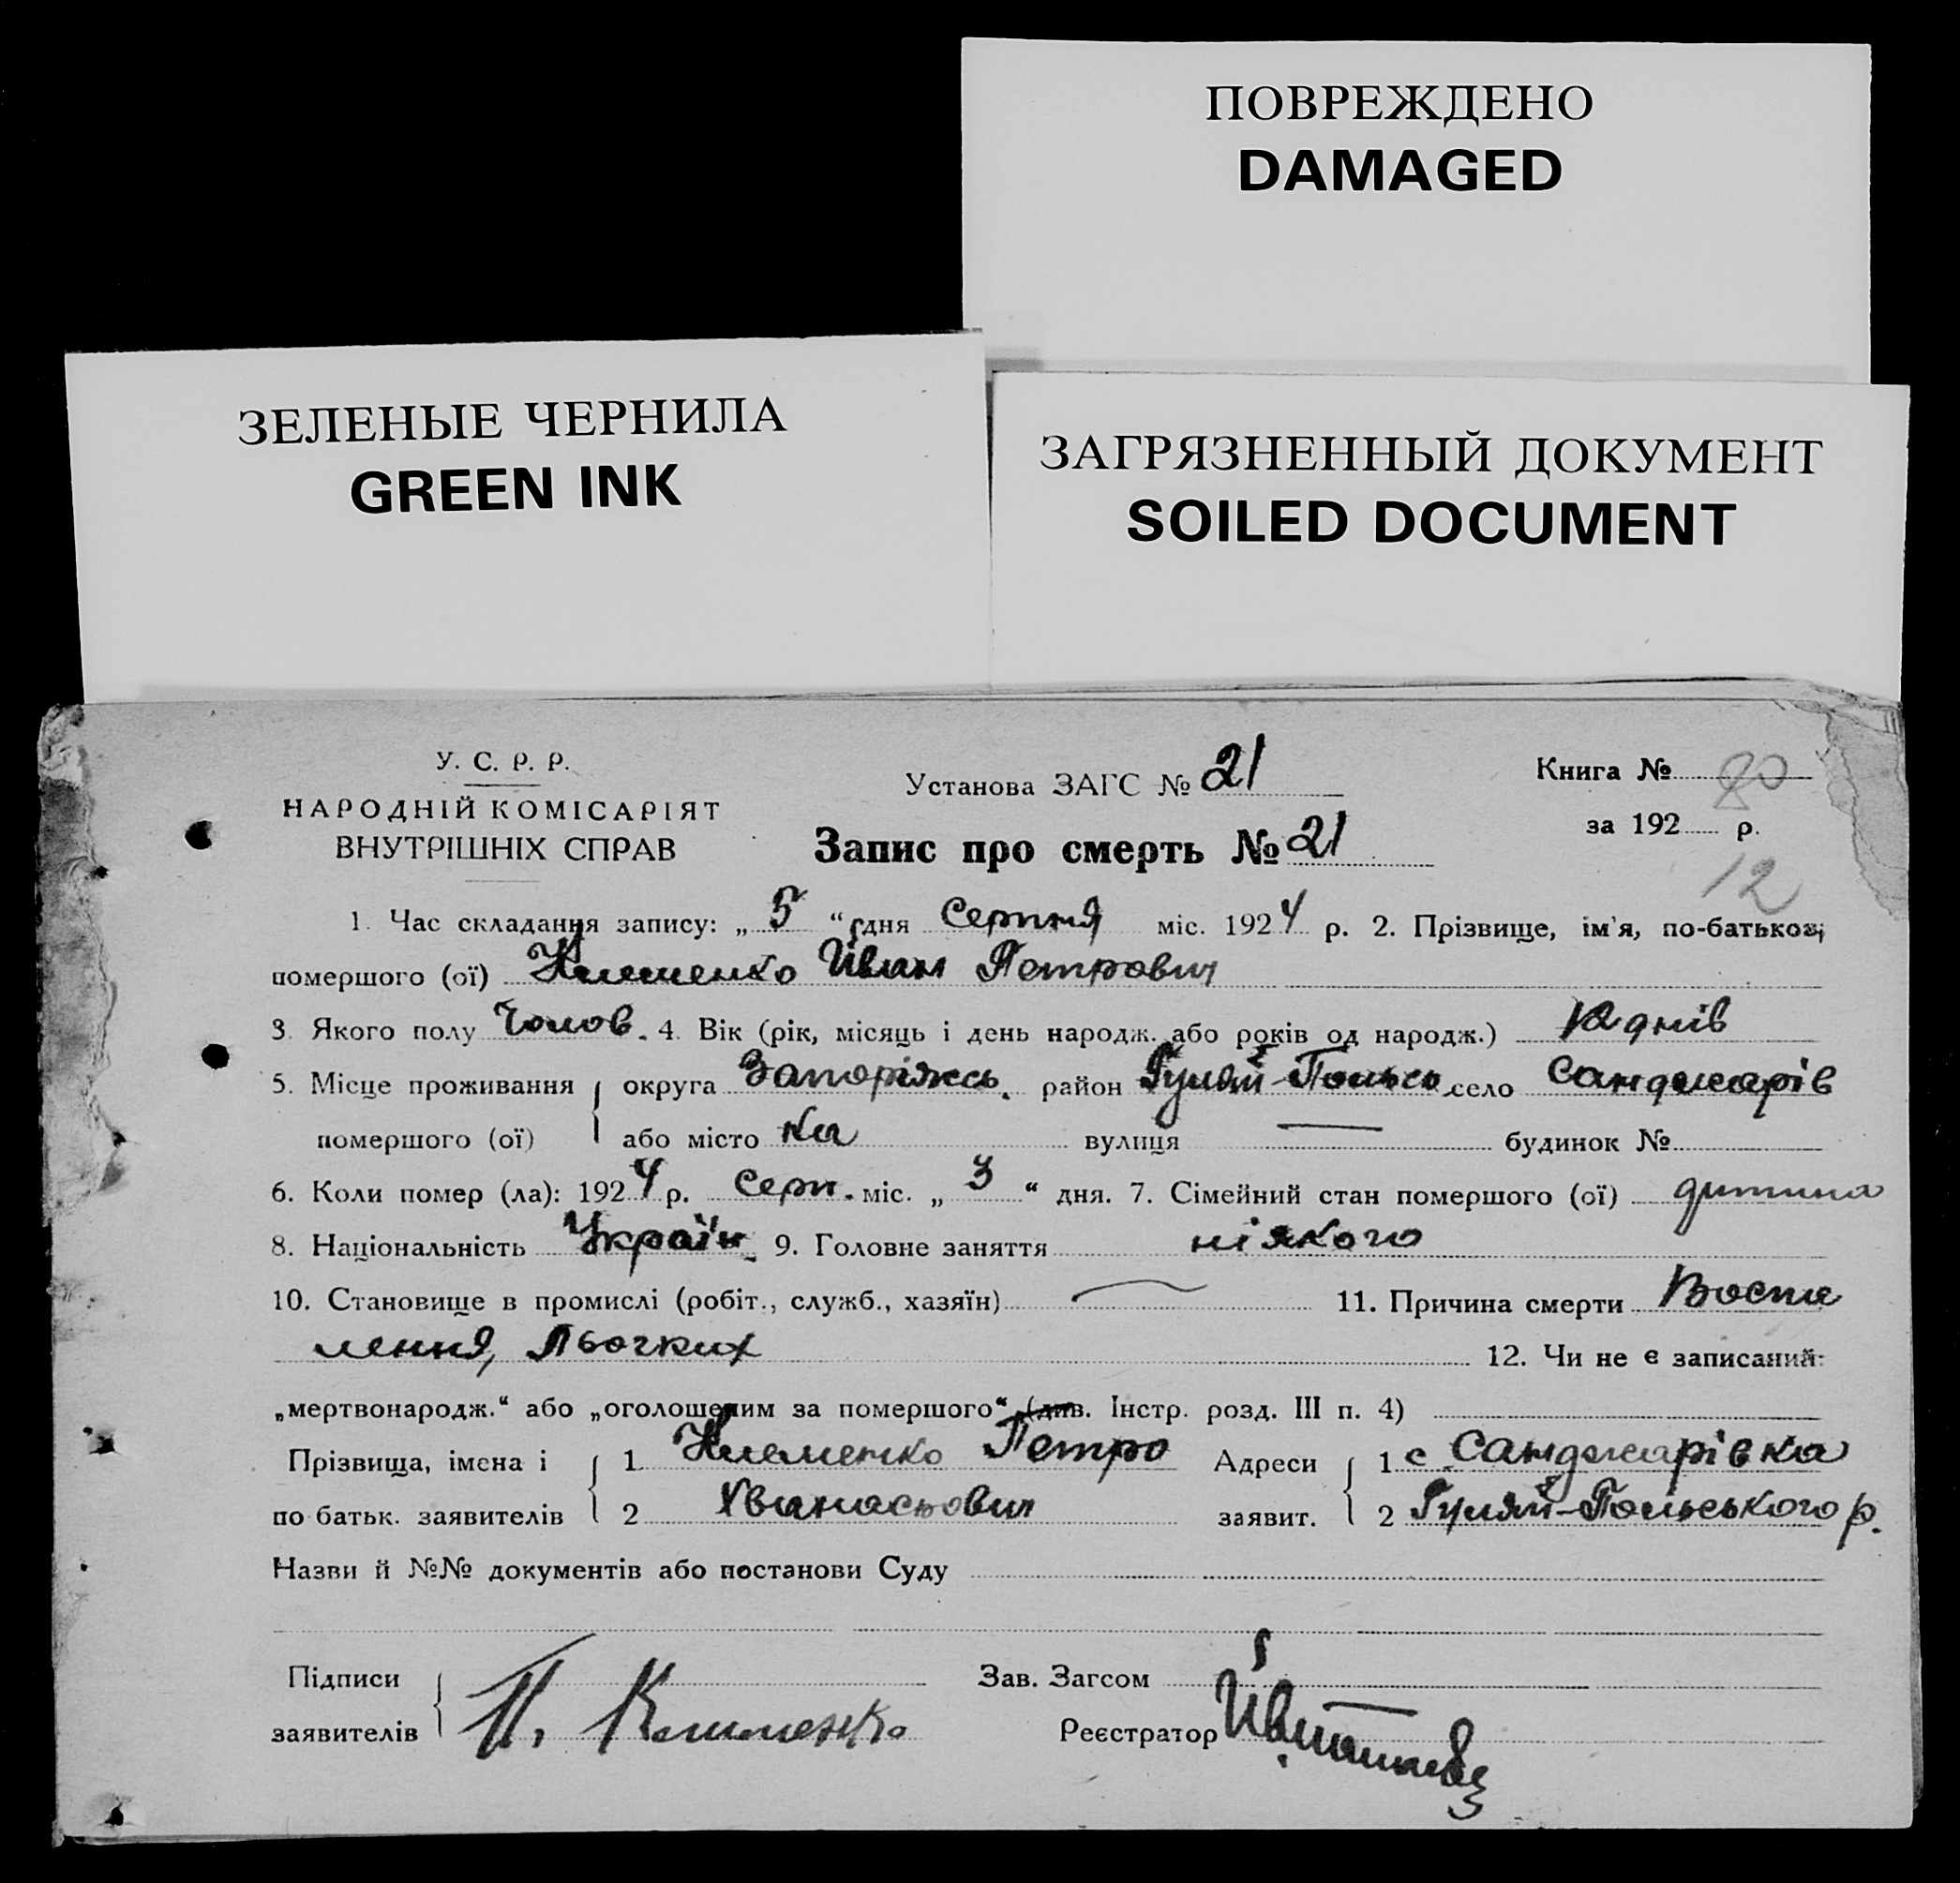 ПОВРЕЖДЕНО
DAMAGED
ЗЕЛЕНЫЕ ЧЕРНИЛА
GREEN INK
ЗАГРЯЗНЕННЫЙ ДОКУМЕНТ
SOILED DOCUMENT
У. С. Р. Р.
НАРОДНІЙ КОМІСАРІЯТ
ВНУТРІШНІХ СПРАВ
Установа ЗАГС № 21
Запис про смерть № 21
Книга №
за 192 р.
12
1. Час складання запису: „ 5 “ дня Серпня міс. 1924 р. 2. Прізвище, ім'я, по-батькові
помершого (ої) Клеменко Иван Петрович
3. Якого полу Чолов. 4. Вік (рік, місяць і день народж. або років од народж.) 12 днів
5. Місце проживання округа Запоріжсь. район Гуляй-Польсь село Санджарів
помершого (ої) або місто ка вулиця — будинок №
6. Коли помер (ла): 1924 р. Серп. міс. „ 3 “ дня. 7. Сімейний стан помершого (ої) дитина
8. Національність Україн. 9. Головне заняття ніякого
10. Становище в промислі (робіт., служб., хазяїн) — 11. Причина смерти Воспа
лення, Льогких
12. Чи не є записаний:
„мертвонародж.“ або „оголошеним за помершого“ (див. Інстр. розд. III п. 4)
Прізвища, імена і 1 Клеменко Петро Адреси 1 с Санджарівка
по батьк. заявителів 2 заявит. 2 Гуляй-Польського р.
Назви й №№ документів або постанови Суду
Підписи
заявителів П. Клименко
Зав. Загсом
Реєстратор